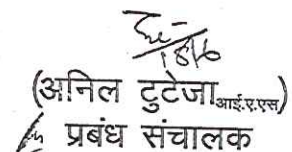 18/6
(अनिल टुटेजा आई.ए.एस)
प्रबंध संचालक